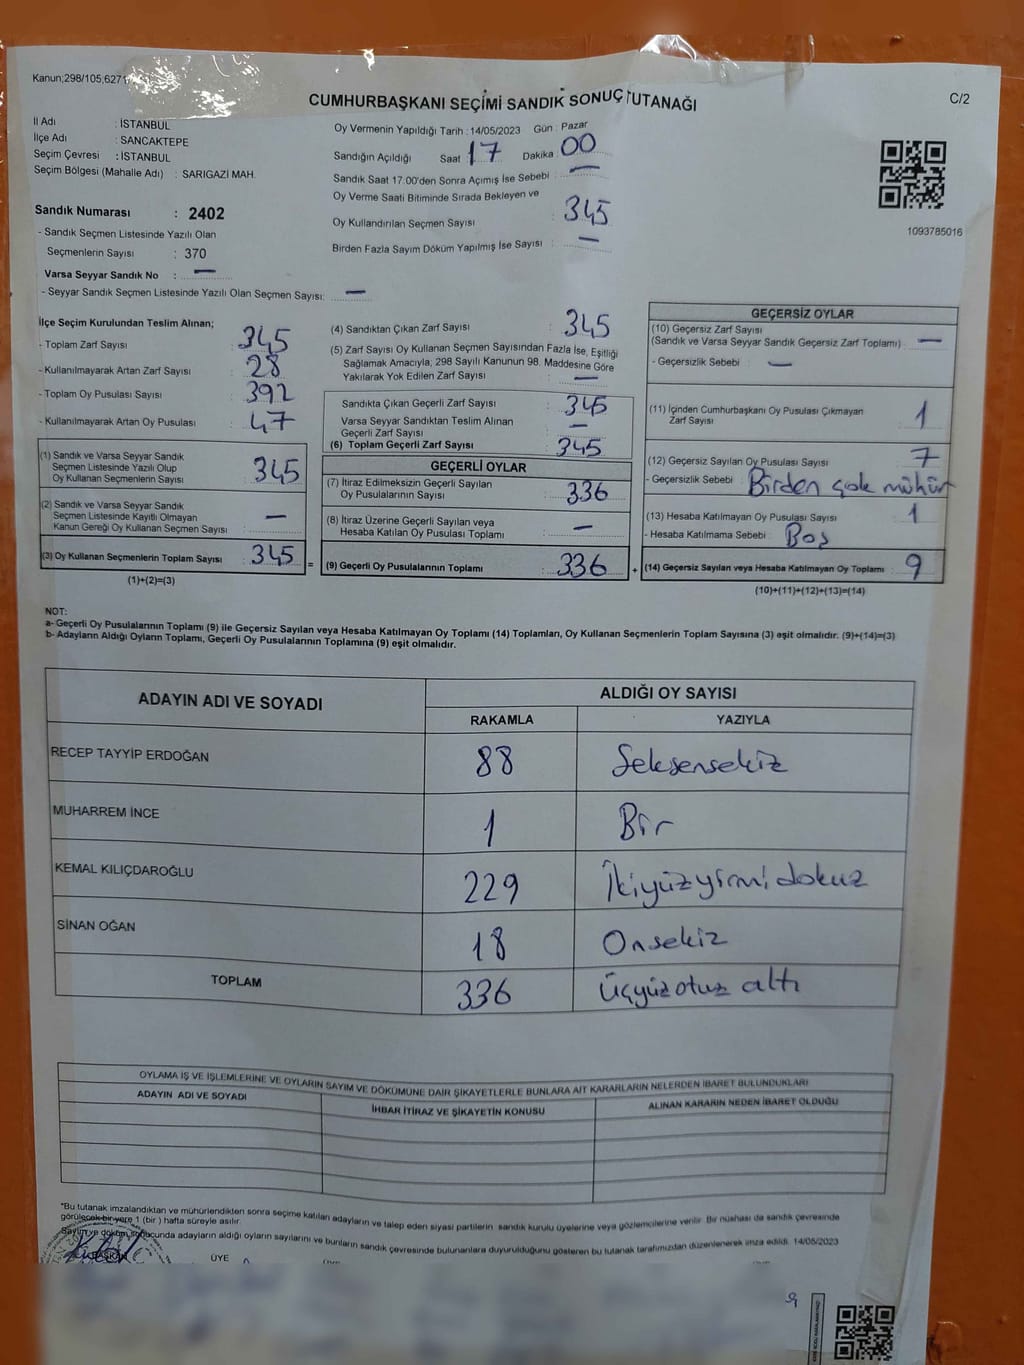 Kanun;298/105,6271
CUMHURBAŞKANI SEÇİMİ SANDIK SONUÇ TUTANAĞI
C/2
İl Adı : İSTANBUL
İlçe Adı : SANCAKTEPE
Seçim Çevresi : İSTANBUL
Seçim Bölgesi (Mahalle Adı) : SARIGAZİ MAH.
Sandık Numarası : 2402
- Sandık Seçmen Listesinde Yazılı Olan
Seçmenlerin Sayısı : 370
Varsa Seyyar Sandık No : —
- Seyyar Sandık Seçmen Listesinde Yazılı Olan Seçmen Sayısı: —
Oy Vermenin Yapıldığı Tarih : 14/05/2023 Gün : Pazar
Sandığın Açıldığı Saat 17 Dakika 00
Sandık Saat 17:00'den Sonra Açımış İse Sebebi : —
Oy Verme Saati Bitiminde Sırada Bekleyen ve
Oy Kullandırılan Seçmen Sayısı : 345
Birden Fazla Sayım Döküm Yapılmış İse Sayısı : —
1093785016
İlçe Seçim Kurulundan Teslim Alınan;
- Toplam Zarf Sayısı : 345
- Kullanılmayarak Artan Zarf Sayısı : 28
- Toplam Oy Pusulası Sayısı : 392
- Kullanılmayarak Artan Oy Pusulası : 47
(1) Sandık ve Varsa Seyyar Sandık
Seçmen Listesinde Yazılı Olup
Oy Kullanan Seçmenlerin Sayısı : 345
(2) Sandık ve Varsa Seyyar Sandık
Seçmen Listesinde Kayıtlı Olmayan
Kanun Gereği Oy Kullanan Seçmen Sayısı : —
(3) Oy Kullanan Seçmenlerin Toplam Sayısı : 345 =
(1)+(2)=(3)
(4) Sandıktan Çıkan Zarf Sayısı : 345
(5) Zarf Sayısı Oy Kullanan Seçmen Sayısından Fazla İse, Eşitliği
Sağlamak Amacıyla, 298 Sayılı Kanunun 98. Maddesine Göre
Yakılarak Yok Edilen Zarf Sayısı : —
Sandıkta Çıkan Geçerli Zarf Sayısı : 345
Varsa Seyyar Sandıktan Teslim Alınan
Geçerli Zarf Sayısı : —
(6) Toplam Geçerli Zarf Sayısı : 345
GEÇERLİ OYLAR
(7) İtiraz Edilmeksizin Geçerli Sayılan
Oy Pusulalarının Sayısı : 336
(8) İtiraz Üzerine Geçerli Sayılan veya
Hesaba Katılan Oy Pusulası Toplamı : —
(9) Geçerli Oy Pusulalarının Toplamı : 336 +
GEÇERSİZ OYLAR
(10) Geçersiz Zarf Sayısı
(Sandık ve Varsa Seyyar Sandık Geçersiz Zarf Toplamı) : —
- Geçersizlik Sebebi : —
(11) İçinden Cumhurbaşkanı Oy Pusulası Çıkmayan
Zarf Sayısı : 1
(12) Geçersiz Sayılan Oy Pusulası Sayısı : 7
- Geçersizlik Sebebi : Birden çok mühür
(13) Hesaba Katılmayan Oy Pusulası Sayısı : 1
- Hesaba Katılmama Sebebi : Boş
(14) Geçersiz Sayılan veya Hesaba Katılmayan Oy Toplamı : 9
(10)+(11)+(12)+(13)=(14)
NOT:
a- Geçerli Oy Pusulalarının Toplamı (9) ile Geçersiz Sayılan veya Hesaba Katılmayan Oy Toplamı (14) Toplamları, Oy Kullanan Seçmenlerin Toplam Sayısına (3) eşit olmalıdır. (9)+(14)=(3)
b- Adayların Aldığı Oyların Toplamı, Geçerli Oy Pusulalarının Toplamına (9) eşit olmalıdır.
ADAYIN ADI VE SOYADI
ALDIĞI OY SAYISI
RAKAMLA YAZIYLA
RECEP TAYYİP ERDOĞAN 88 Seksensekiz
MUHARREM İNCE 1 Bir
KEMAL KILIÇDAROĞLU 229 İkiyüzyirmi dokuz
SİNAN OĞAN 18 Onsekiz
TOPLAM 336 Üçyüz otuz altı
OYLAMA İŞ VE İŞLEMLERİNE VE OYLARIN SAYIM VE DÖKÜMÜNE DAİR ŞİKAYETLERLE BUNLARA AİT KARARLARIN NELERDEN İBARET BULUNDUKLARI
ADAYIN ADI VE SOYADI
İHBAR İTİRAZ VE ŞİKAYETİN KONUSU
ALINAN KARARIN NEDEN İBARET OLDUĞU
"Bu tutanak imzalandıktan ve mühürlendikten sonra seçime katılan adayların ve talep eden siyasi partilerin sandık kurulu üyelerine veya gözlemcilerine verilir. Bir nüshası da sandık çevresinde
görülecek bir yere 1 (bir ) hafta süreyle asılır.
Sayım ve döküm sonucunda adayların aldığı oyların sayılarını ve bunların sandık çevresinde bulunanlara duyurulduğunu gösteren bu tutanak tarafımızdan düzenlenerek imza edildi. 14/05/2023
BAŞKAN
ÜYE